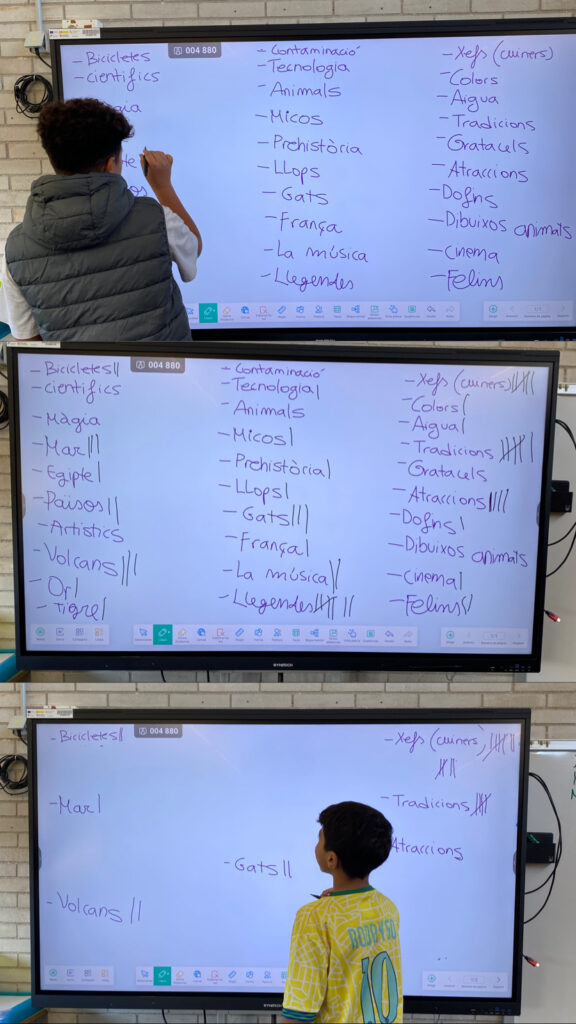 - Bicicletes
- científics
004 880
- Contaminació
- Tecnologia
- Animals
- Micos
- Prehistòria
- Llops
- Gats
- França
- La música
- Llegendes
- Xefs (cuiners)
- Colors
- Aigua
- Tradicions
- Gratacels
- Atraccions
- Dofins
- Dibuixos animats
- cinema
- Felins
- Bicicletes ||
- científics
- Màgia
- Mar |||
- Egipte |
- Països ||
- Artístics
- Volcans |||
- Or |
- Tigre |
004 880
- Contaminació
- Tecnologia |
- Animals
- Micos |
- Prehistòria |
- Llops |
- Gats |||
- França |
- La música ||
- Llegendes
- Xefs (cuiners)
- Colors |
- Aigua |
- Tradicions
- Gratacels
- Atraccions ||||
- Dofins |
- Dibuixos animats
- cinema |
- Felins ||
- Bicicletes ||
- Mar |
- Volcans ||
004 880
- Gats ||
- Xefs (cuiners)
- Tradicions
Atraccions
10